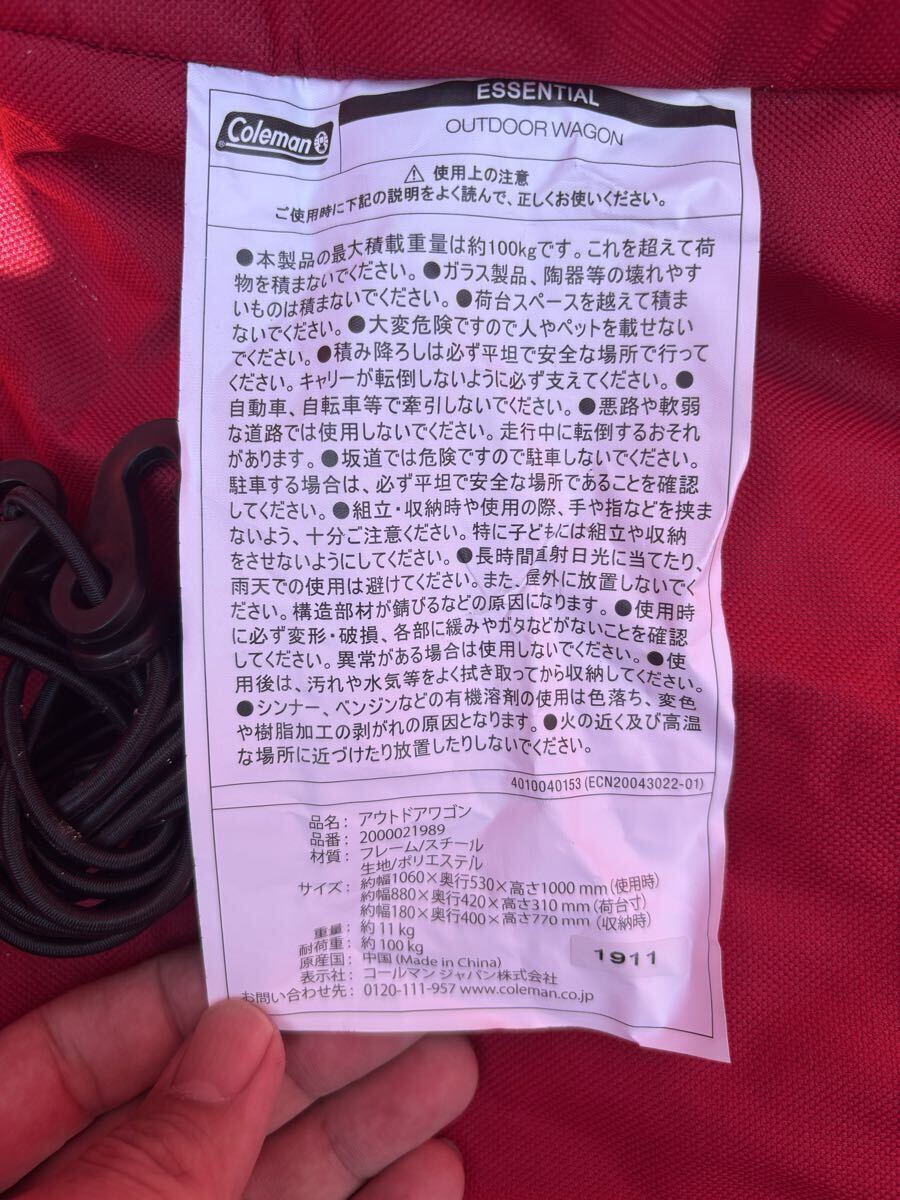 ESSENTIAL
Coleman
OUTDOOR WAGON
⚠ 使用上の注意
ご使用時に下記の説明をよく読んで、正しくお使いください。
●本製品の最大積載重量は約100kgです。これを超えて荷
物を積まないでください。●ガラス製品、陶器等の壊れやす
いものは積まないでください。●荷台スペースを越えて積ま
ないでください。●大変危険ですので人やペットを載せない
でください。●積み降ろしは必ず平坦で安全な場所で行って
ください。キャリーが転倒しないように必ず支えてください。●
自動車、自転車等で牽引しないでください。●悪路や軟弱
な道路では使用しないでください。走行中に転倒するおそれ
があります。●坂道では危険ですので駐車しないでください。
駐車する場合は、必ず平坦で安全な場所であることを確認
してください。●組立・収納時や使用の際、手や指などを挟ま
ないよう、十分ご注意ください。特に子どもには組立や収納
をさせないようにしてください。●長時間直射日光に当てたり、
雨天での使用は避けてください。また、屋外に放置しないでく
ださい。構造部材が錆びるなどの原因になります。●使用時
に必ず変形・破損、各部に緩みやガタなどがないことを確認
してください。異常がある場合は使用しないでください。●使
用後は、汚れや水気等をよく拭き取ってから収納してください。
●シンナー、ベンジンなどの有機溶剤の使用は色落ち、変色
や樹脂加工の剥がれの原因となります。●火の近く及び高温
な場所に近づけたり放置したりしないでください。
4010040153 (ECN20043022-01)
品名: アウトドアワゴン
品番: 2000021989
材質: フレーム/スチール
生地/ポリエステル
サイズ: 約幅1060×奥行530×高さ1000 mm (使用時)
約幅880×奥行420×高さ310 mm (荷台寸)
約幅180×奥行400×高さ770 mm (収納時)
重量: 約 11 kg
耐荷重: 約 100 kg
原産国: 中国 (Made in China)
表示社: コールマン ジャパン株式会社
お問い合わせ先: 0120-111-957 www.coleman.co.jp
1911